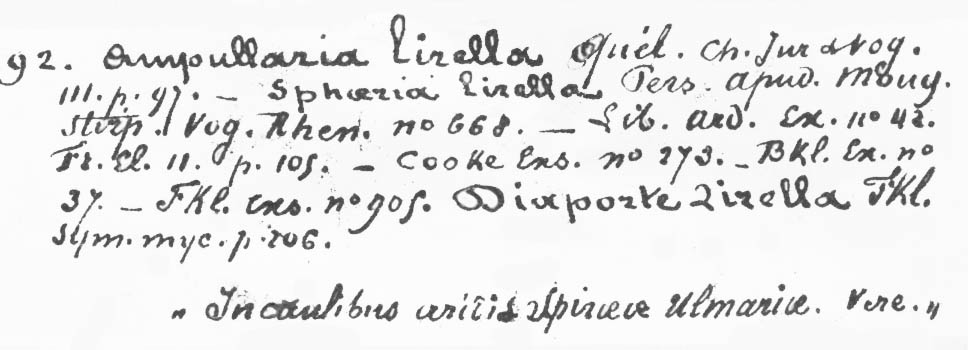 92. Ampullaria Lirella Quél. Ch. Jur & Vog.
III. p. 97. – Sphæria Lirella Pers. apud. Moug.
Stirp. Vog. Rhen. no 668. – Lib. ard. Ex. no 42.
Fr. El. II. p. 105. – Cooke Exs. no 273. – Bkl. Ex. no
37. – Fkl. exs. no 905. Diaporte Lirella Fkl.
Sym. myc. p. 206.
„ In caulibus aridis Spirææ Ulmariæ. Vere. „